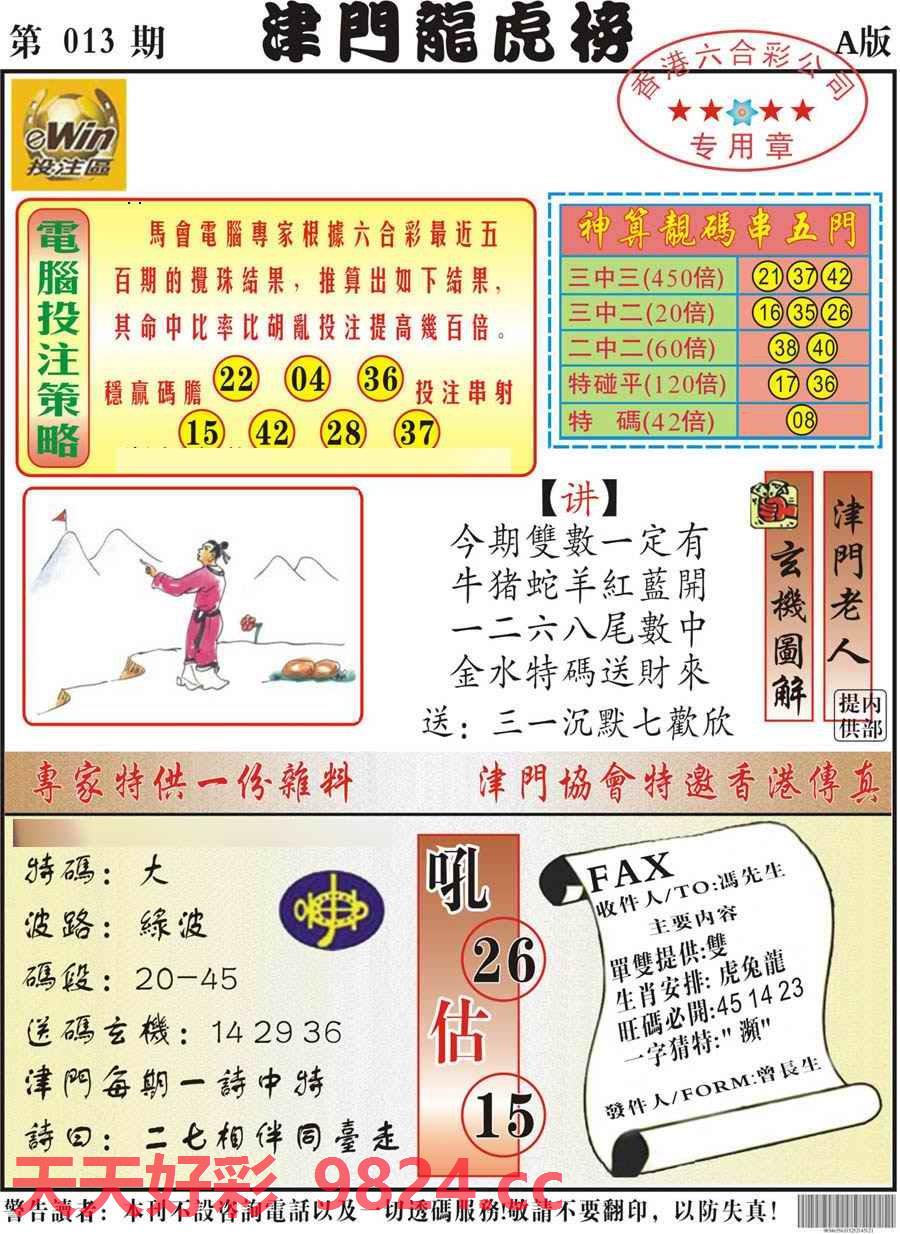 第 013 期
津門龍虎榜
A版
香港六合彩公司
专用章
eWin
投注區
電腦投注策略
馬會電腦專家根據六合彩最近五
百期的攪珠結果，推算出如下結果，
其命中比率比胡亂投注提高幾百倍。
穩贏碼膽 22 04 36 投注串射
15 42 28 37
神算靚碼串五門
三中三(450倍) 21 37 42
三中二(20倍) 16 35 26
二中二(60倍) 38 40
特碰平(120倍) 17 36
特 碼(42倍) 08
【讲】
今期雙數一定有
牛猪蛇羊紅藍開
一二六八尾數中
金水特碼送財來
送：三一沉默七歡欣
玄機圖解
津門老人
提供
内部
專家特供一份雜料
津門協會特邀香港傳真
特碼：大
波路：綠波
碼段：20-45
送碼玄機：14 29 36
津門每期一詩中特
詩曰：二七相伴同臺走
吼
26
估
15
FAX
收件人/TO:馮先生
主要内容
單雙提供:雙
生肖安排: 虎兔龍
旺碼必開:45 14 23
一字猜特:"瀕"
發件人/FORM:曾長生
天天好彩 9824.cc
警告讀者：本刊不設咨詢電話以及一切透碼服務!敬請不要翻印，以防失真!